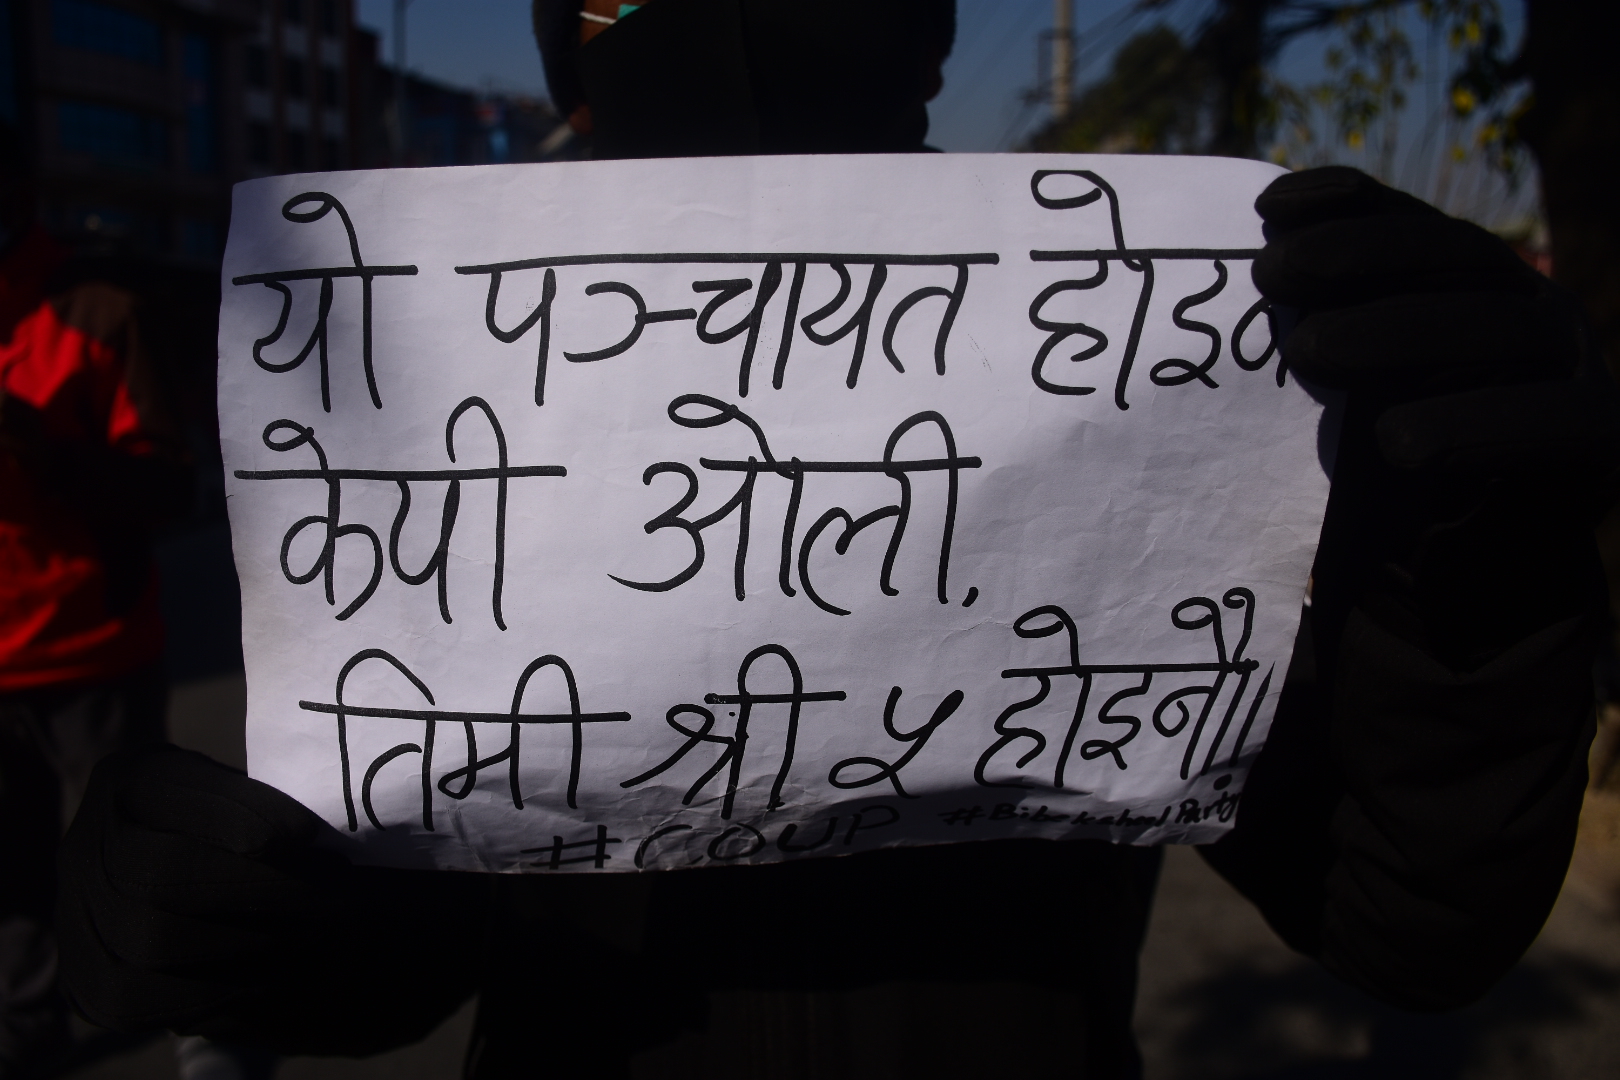 यो पञ्चायत होइन
केपी ओली,
तिमी श्री ५ होइनौ!!
#COUP #BibeksheelParty